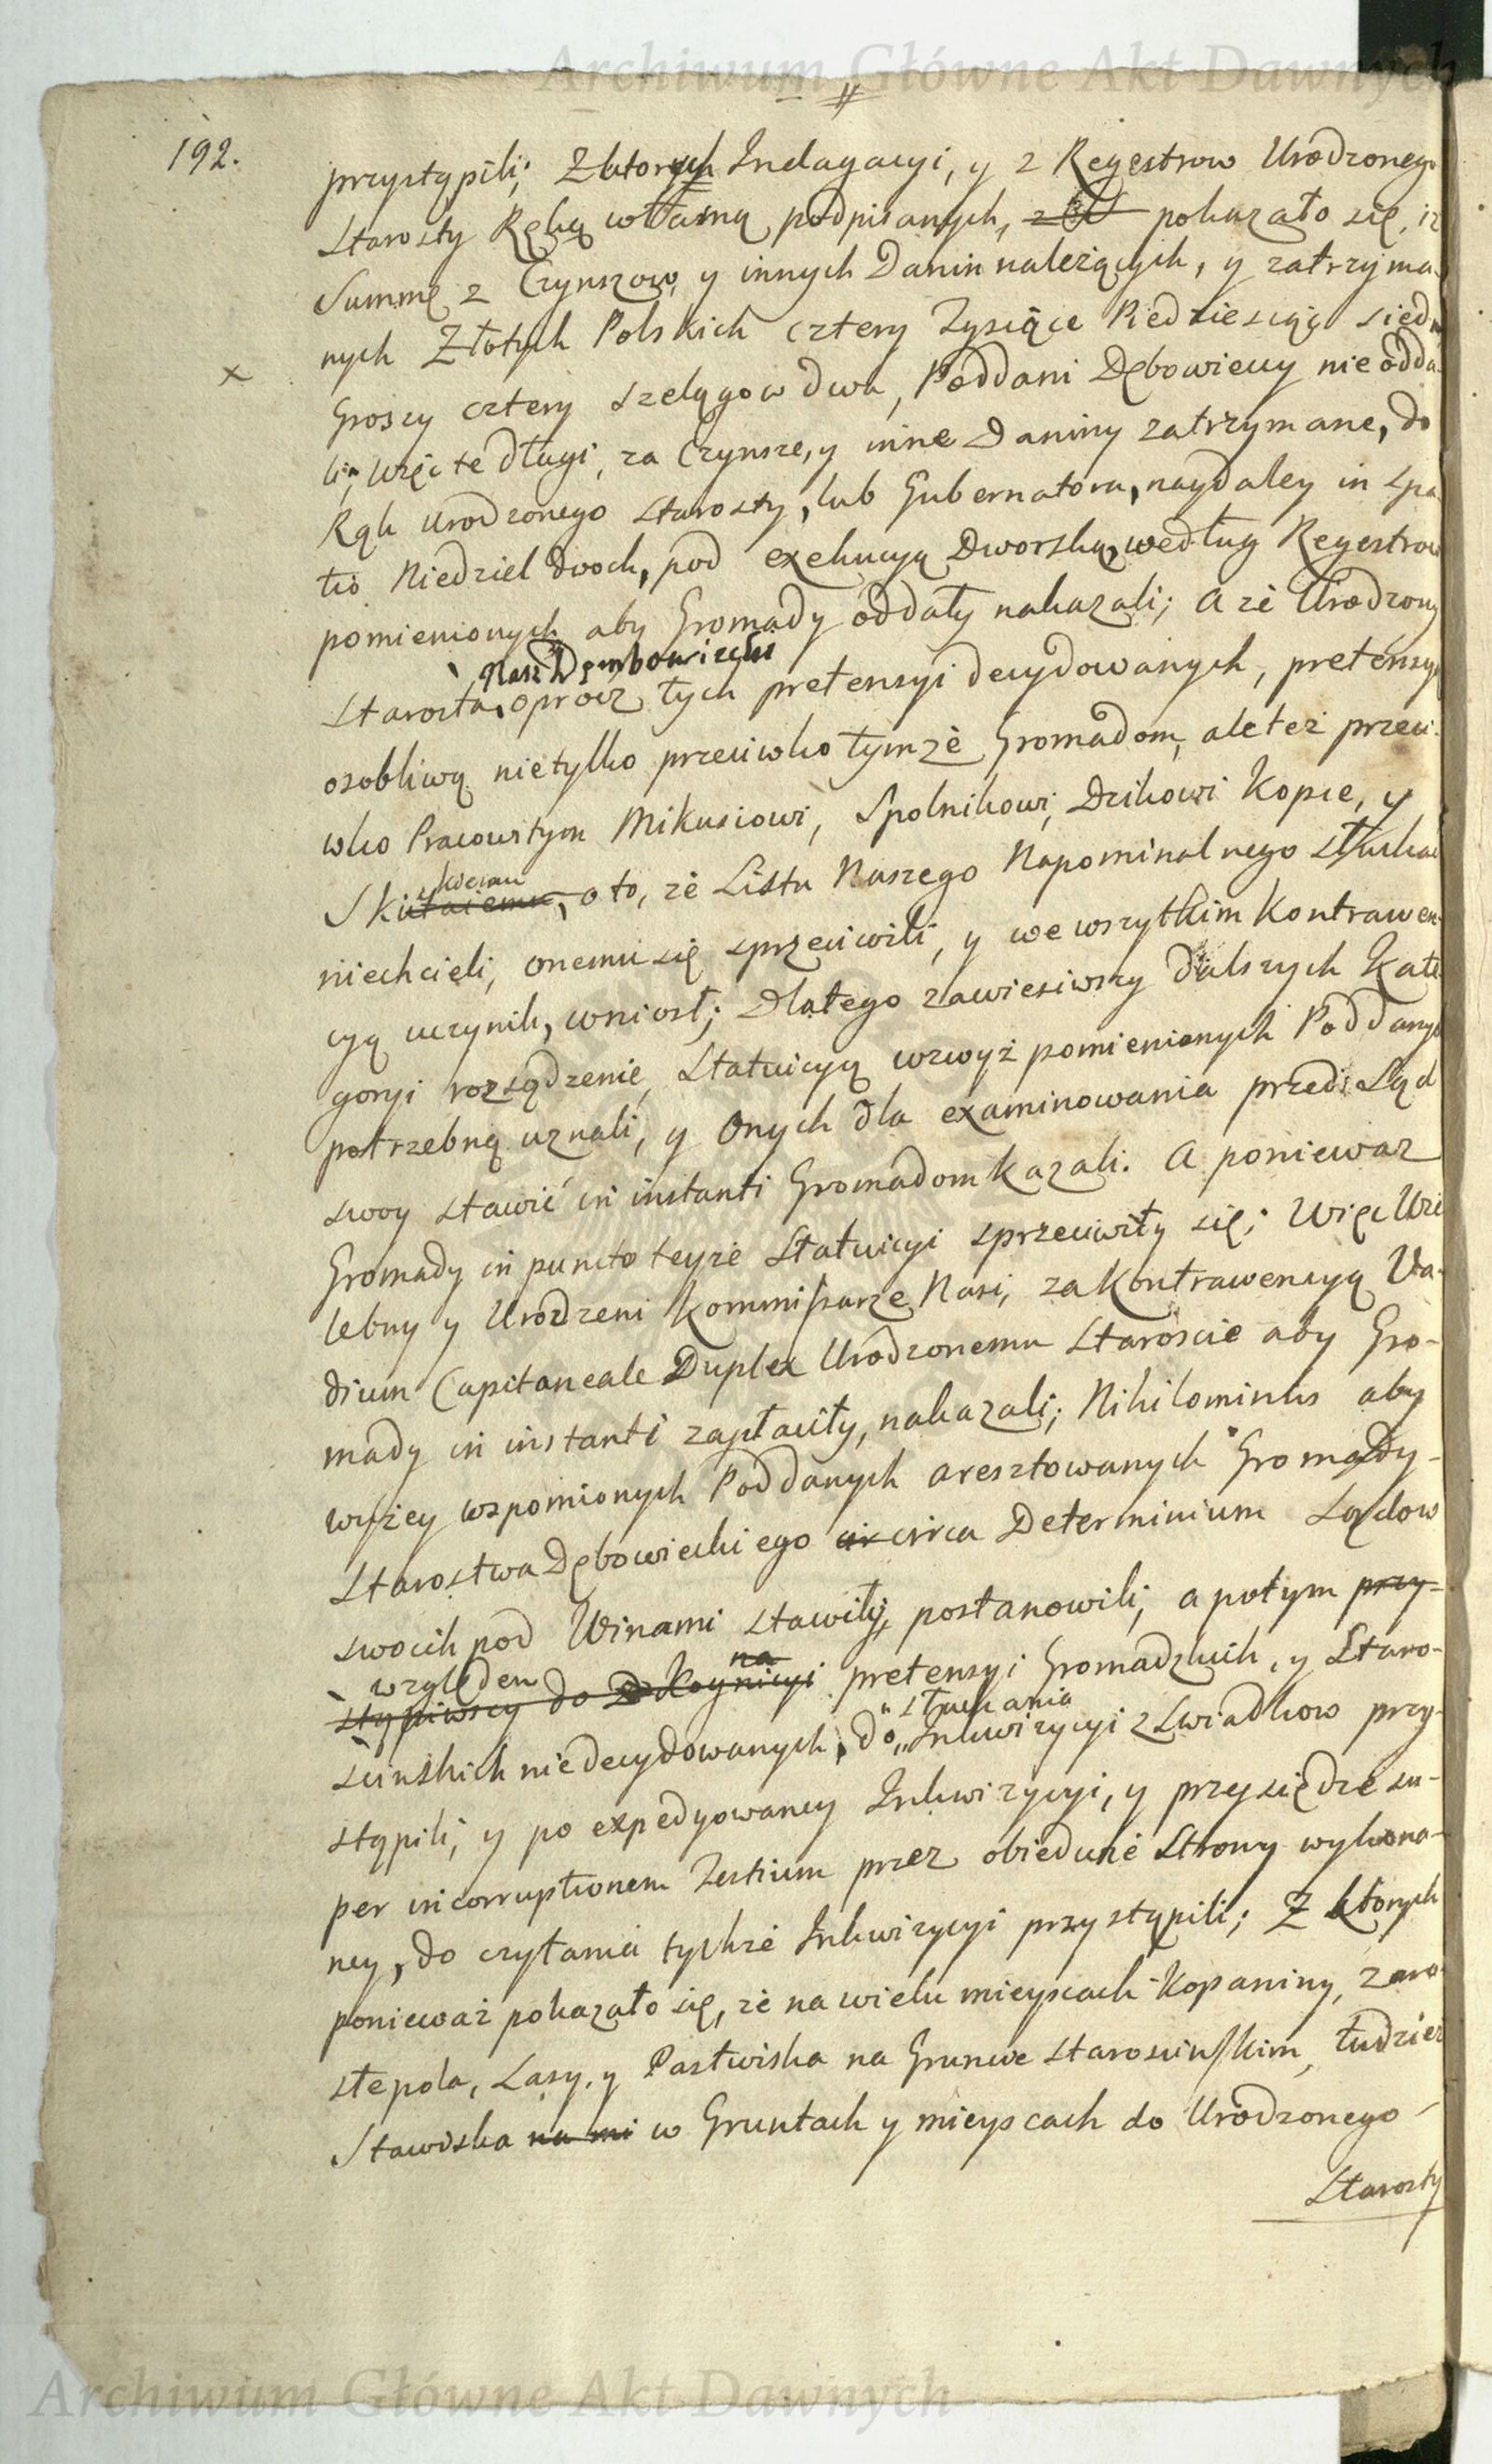 Archiwum Główne Akt Dawnych
192.
przystąpili; Z ktorych Indagacyi, y z Regestrow Urodzonego
Starosty Ręką własną podpisanych, pokazało się, iz
Summę z Czynszow, y innych Danin należących, y zatrzyma-
nych Złotych Polskich cztery Tysiące Piedziesiąt siedm
x
Groszy cztery szelągow dwa, Poddani Dębowieccy nie odda-
li, więc te długi, za Czynsze, y inne Daniny zatrzymane, do
Rąk Urodzonego Starosty, lub Gubernatora, naydaley in spa-
tio Niedziel dwoch, pod exekucyą Dworską, według Regestrow
pomienionych aby Gromady oddały nakazali; A że Urodzony
Nasz Dembowiecki
Starosta, oprocz tych pretensyi decydowanych, pretensyą
osobliwą nietylko przeciwko tymże Gromadom, ale też przeci-
wko Pracowitym Mikusiowi, Spolnikowi, Dzikowi Kopce, y
Sku o to, że Listu Naszego Napominalnego słuchać
niechcieli, onemu się sprzeciwili, y we wszytkim kontrawen-
cyą uczynili, wniosł; Dlatego zawiesiwszy dalszych Kate-
goryi rozsądzenie, Statuicyą wzwyż pomienionych Poddanych
potrzebną uznali, y Onych dla examinowania przed Sąd
swoy stawić in instanti Gromadom kazali. A poniewaz
Gromady in puncto teyże Statuicyi sprzeciwiły się; Więc Wie-
lebny y Urodzeni Kommissarze Nasi, za kontrawencyą Va-
dium Capitaneale Duplex Urodzonemu Staroscie aby Gro-
mady in instanti zapłaciły, nakazali; Nihilominus aby
wyżey wspomionych Poddanych aresztowanych Gromady
Starostwa Dębowieckiego circa Determinium Sądow
swoich pod Winami stawiły, postanowili, a potym przy-
względem na
stąpiwszy do pretensyi Gromadzkich, y Staro-
słuchania
scinskich niedecydowanych, do Inkwizycyi z Swiadkow przy-
stąpili, y po expedyowaney Inkwizycyi, y przysiędze su-
per incorruptionem Testium przez obiedwie Strony wykona-
ney, do czytania tychże Inkwizycyi przystąpili; Z ktorych
ponieważ pokazało się, że na wielu mieyscach Kopaniny, Zaro-
ste pola, Lasy, y Pastwiska na Gruncie Staroscinskim, tudzież
Stawiska na mi w Gruntach y mieyscach do Urodzonego
Starosty
Archiwum Główne Akt Dawnych